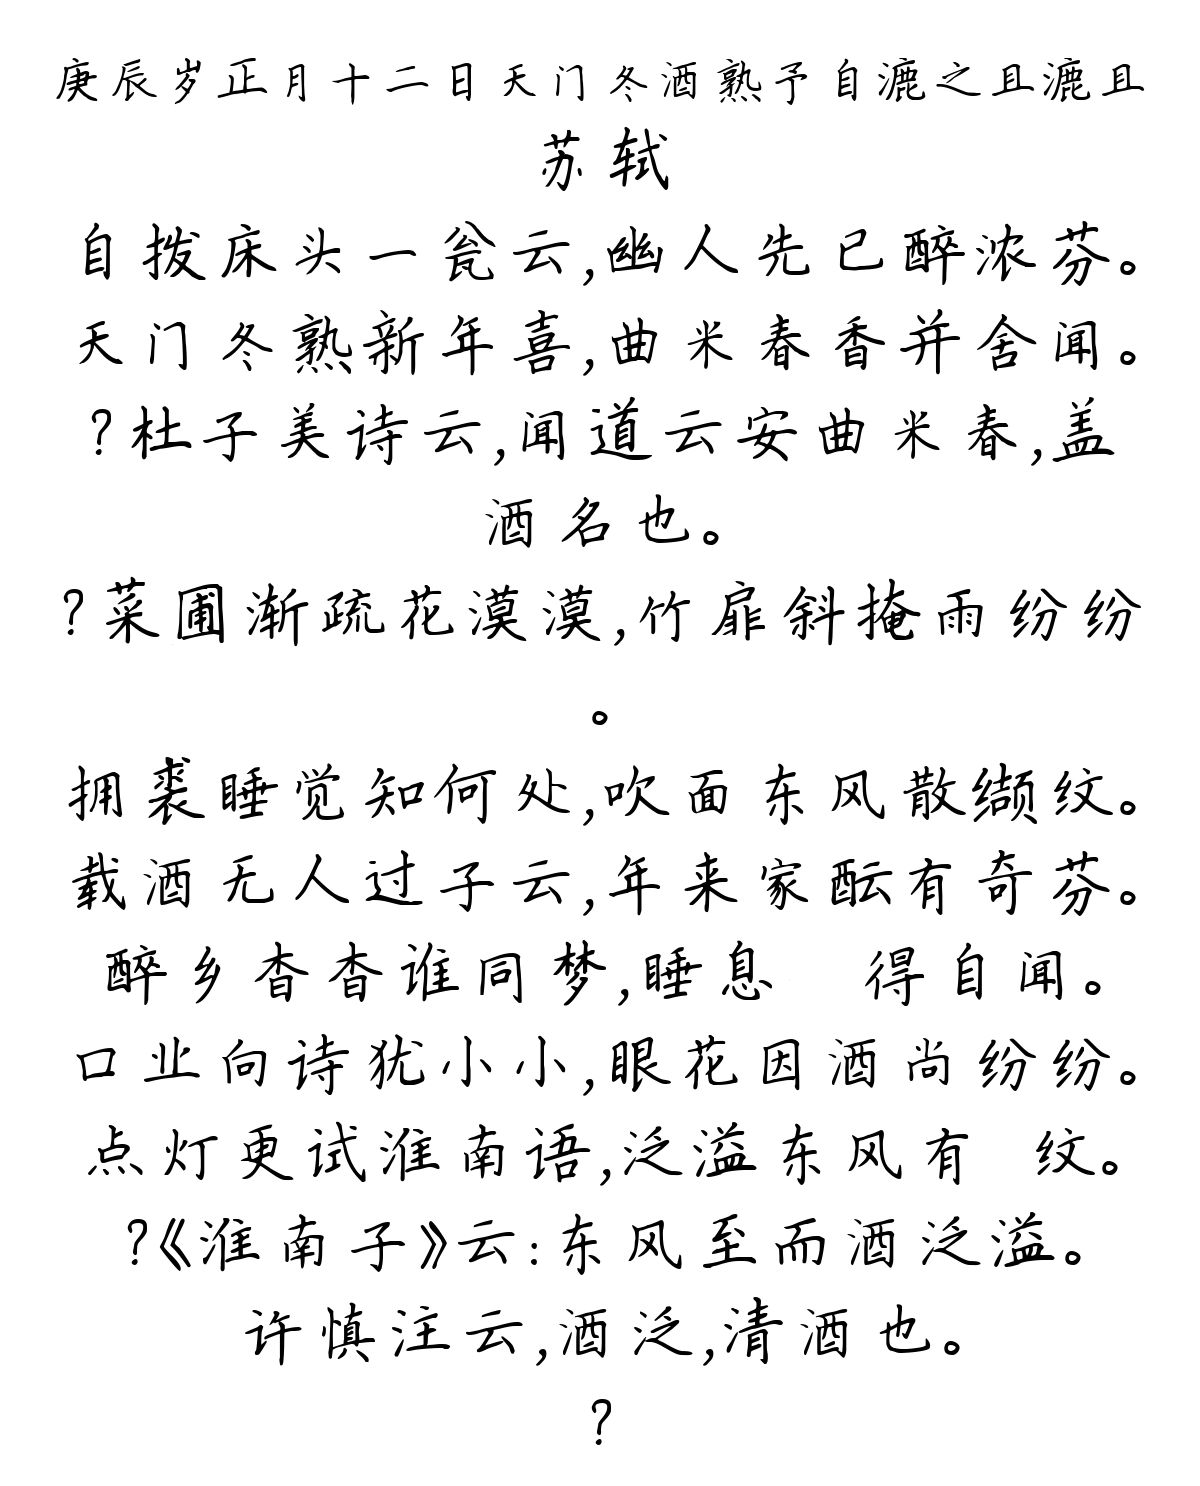 庚辰岁正月十二日天门冬酒熟予自漉之且漉且
苏轼
自拨床头一瓮云,幽人先已醉浓芬。
天门冬熟新年喜,曲米春香并舍闻。
?杜子美诗云,闻道云安曲米春,盖
酒名也。
?菜圃渐疏花漠漠,竹扉斜掩雨纷纷
。
拥裘睡觉知何处,吹面东风散缬纹。
载酒无人过子云,年来家酝有奇芬。
醉乡杳杳谁同梦,睡息 得自闻。
口业向诗犹小小,眼花因酒尚纷纷。
点灯更试淮南语,泛溢东风有 纹。
?《淮南子》云:东风至而酒泛溢。
许慎注云,酒泛,清酒也。
?